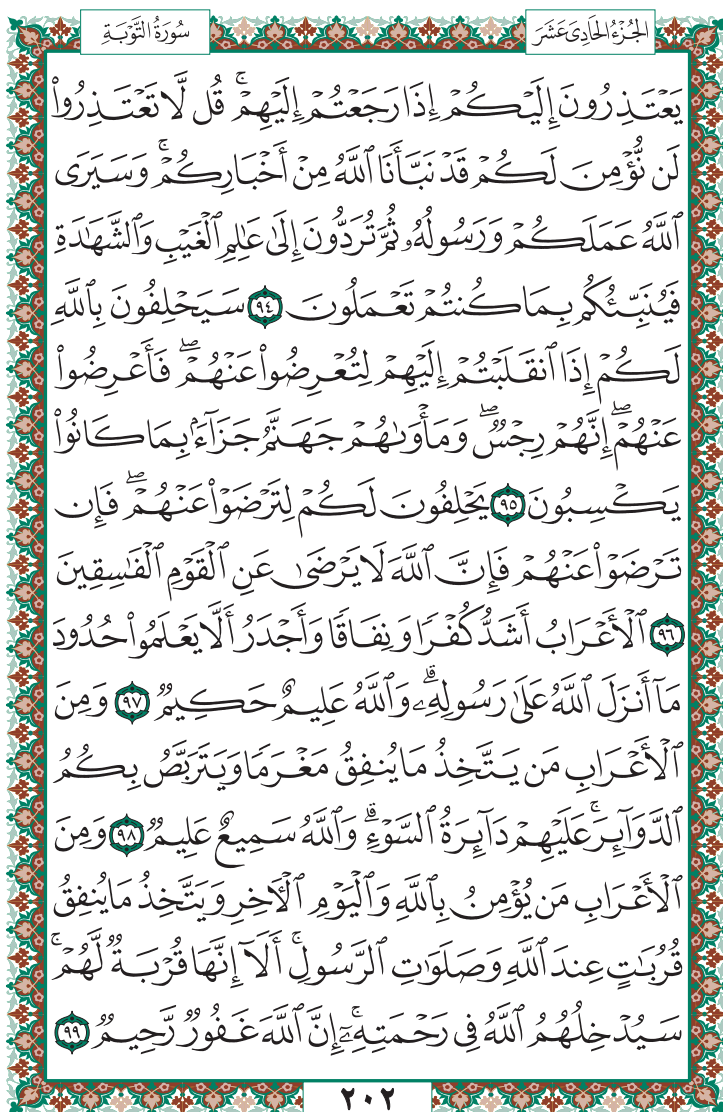 الجُزْءُ الحَادِى عَشَرَ
سُورَةُ التَّوۡبَةِ
يَعۡتَذِرُونَ إِلَيۡكُمۡ إِذَا رَجَعۡتُمۡ إِلَيۡهِمۡۚ قُل لَّا تَعۡتَذِرُواْ
لَن نُّؤۡمِنَ لَكُمۡ قَدۡ نَبَّأَنَا ٱللَّهُ مِنۡ أَخۡبَارِكُمۡۚ وَسَيَرَى
ٱللَّهُ عَمَلَكُمۡ وَرَسُولُهُۥ ثُمَّ تُرَدُّونَ إِلَىٰ عَٰلِمِ ٱلۡغَيۡبِ وَٱلشَّهَٰدَةِ
فَيُنَبِّئُكُم بِمَا كُنتُمۡ تَعۡمَلُونَ ٩٤ سَيَحۡلِفُونَ بِٱللَّهِ
لَكُمۡ إِذَا ٱنقَلَبۡتُمۡ إِلَيۡهِمۡ لِتُعۡرِضُواْ عَنۡهُمۡۖ فَأَعۡرِضُواْ
عَنۡهُمۡۖ إِنَّهُمۡ رِجۡسٞۖ وَمَأۡوَىٰهُمۡ جَهَنَّمُ جَزَآءَۢ بِمَا كَانُواْ
يَكۡسِبُونَ ٩٥ يَحۡلِفُونَ لَكُمۡ لِتَرۡضَوۡاْ عَنۡهُمۡۖ فَإِن
تَرۡضَوۡاْ عَنۡهُمۡ فَإِنَّ ٱللَّهَ لَا يَرۡضَىٰ عَنِ ٱلۡقَوۡمِ ٱلۡفَٰسِقِينَ
٩٦ ٱلۡأَعۡرَابُ أَشَدُّ كُفۡرٗا وَنِفَاقٗا وَأَجۡدَرُ أَلَّا يَعۡلَمُواْ حُدُودَ
مَآ أَنزَلَ ٱللَّهُ عَلَىٰ رَسُولِهِۦۗ وَٱللَّهُ عَلِيمٌ حَكِيمٞ ٩٧ وَمِنَ
ٱلۡأَعۡرَابِ مَن يَتَّخِذُ مَا يُنفِقُ مَغۡرَمٗا وَيَتَرَبَّصُ بِكُمُ
ٱلدَّوَآئِرَۚ عَلَيۡهِمۡ دَآئِرَةُ ٱلسَّوۡءِۗ وَٱللَّهُ سَمِيعٌ عَلِيمٞ ٩٨ وَمِنَ
ٱلۡأَعۡرَابِ مَن يُؤۡمِنُ بِٱللَّهِ وَٱلۡيَوۡمِ ٱلۡأٓخِرِ وَيَتَّخِذُ مَا يُنفِقُ
قُرُبَٰتٍ عِندَ ٱللَّهِ وَصَلَوَٰتِ ٱلرَّسُولِۚ أَلَآ إِنَّهَا قُرۡبَةٞ لَّهُمۡۚ
سَيُدۡخِلُهُمُ ٱللَّهُ فِي رَحۡمَتِهِۦٓۚ إِنَّ ٱللَّهَ غَفُورٞ رَّحِيمٞ ٩٩
٢٠٢